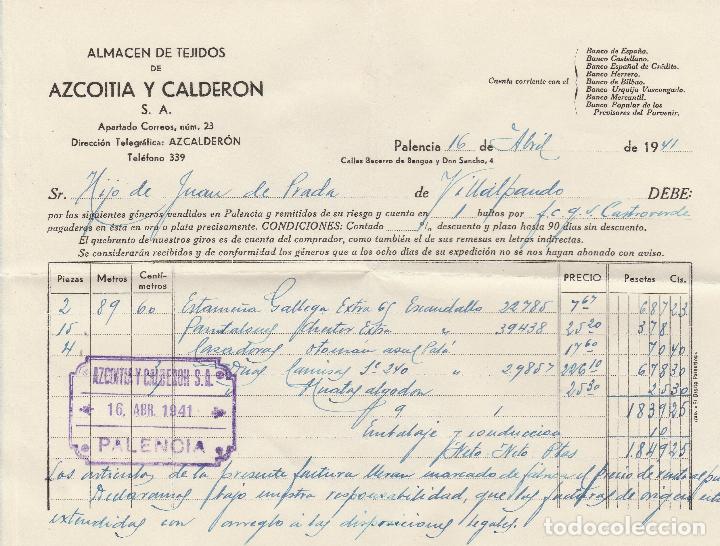 ALMACEN DE TEJIDOS
DE
AZCOITIA Y CALDERON
S. A.
Apartado Correos, núm. 23
Dirección Telegráfica: AZCALDERÓN
Teléfono 339
Cuenta corriente con el
Banco de España.
Banco Castellano.
Banco Español de Crédito.
Banco Herrero.
Banco de Bilbao.
Banco Urquijo Vascongado.
Banco Mercantil.
Banco Popular de los
Previsores del Porvenir.
Palencia 16 de Abril de 1941
Calles Becerro de Bengoa y Don Sancho, 4
Sr. Hijo de Juan de Prada de Villalpando DEBE:
por los siguientes géneros vendidos en Palencia y remitidos de su riesgo y cuenta en 1 bultos por f.c.g.v. Castroverde
pagaderos en ésta en oro o plata precisamente. CONDICIONES: Contado descuento y plazo hasta 90 días sin descuento.
El quebranto de nuestros giros es de cuenta del comprador, como también el de sus remesas en letras indirectas.
Se considerarán recibidos y de conformidad los géneros que a los ocho días de su expedición no se nos hayan abonado con aviso.
Piezas Metros Centímetros PRECIO Pesetas Cts.
2 89 60 Estameña Gallega Extra 65 Escandallo 22785 7,67 687 23
15 Pantalones Extra " 39438 25 20 378
4 Cazadoras otomán azul 17 60 70 40
Camisas 240 " 29857 226 10 678 30
algodon 25 30 25 30
9 1 1839 25
Embalaje y conduccion 10
Neto Ptas 1849 25
AZCOITIA Y CALDERON S.A.
16. ABR. 1941
PALENCIA
Los artículos de la presente factura llevan marcado de el precio de venta al pu
Declaramos bajo nuestra responsabilidad, que las facturas de origen está
extendidas con arreglo á las disposiciones legales.
todocoleccion.net